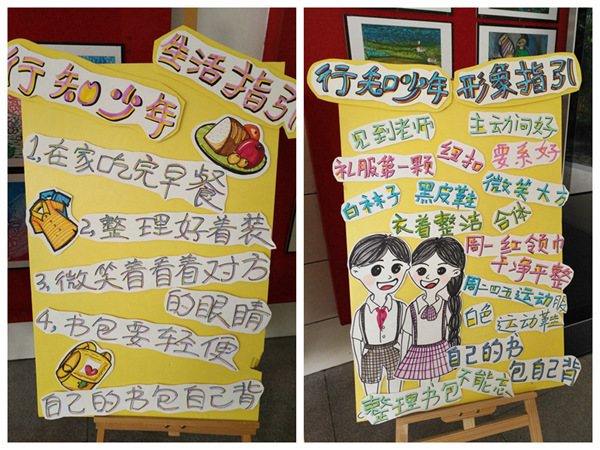 行知少年
生活指引
1,在家吃完早餐
2,整理好着装
3,微笑着看着对方
的眼睛
4,书包要轻便
自己的书包自己背
行知少年 形象指引
见到老师 主动问好
礼服第一颗 纽扣 要系好
白袜子 黑皮鞋 微笑大方
衣着整洁 合体
周一红领巾
干净平整
周二四五运动服
白色 运动鞋
自己的书
包自己背
整理书包 不能忘